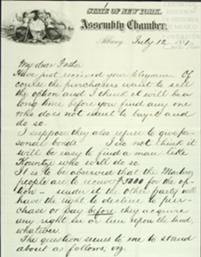 STATE OF NEW YORK.
Assembly Chamber,
Albany, July 12 1881
My dear Foster
Have just received your
of
course the purchasers want to sell
the option and I think it will be a
long time before you find any one
who does not intend to buy it and do
so
I suppose they also refuse to give per-
sonal bonds? I do not think it
will be easy to find a man like
who will do so
It is to be observed that the
people are to receive for the op-
tion - under it the other party will
have the right to decline to pur-
chase or pay before they acquire
any right in or lien upon the land,
whatever.
The question seems to me to stand
about as follows, eg